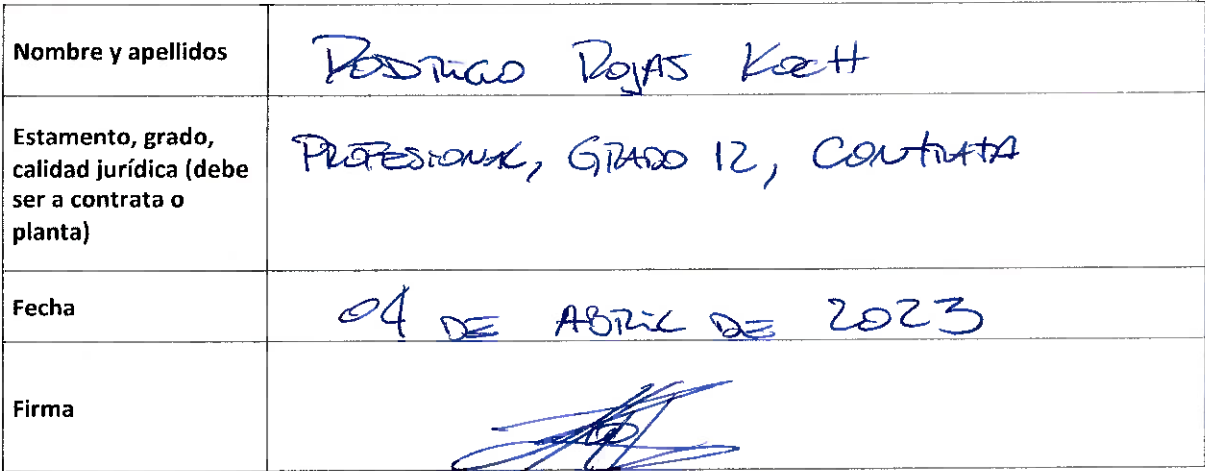 Nombre y apellidos
RODRIGO ROJAS KOCH
Estamento, grado,
calidad jurídica (debe
ser a contrata o
planta)
PROFESIONAL, GRADO 12, CONTRATA
Fecha
04 DE ABRIL DE 2023
Firma